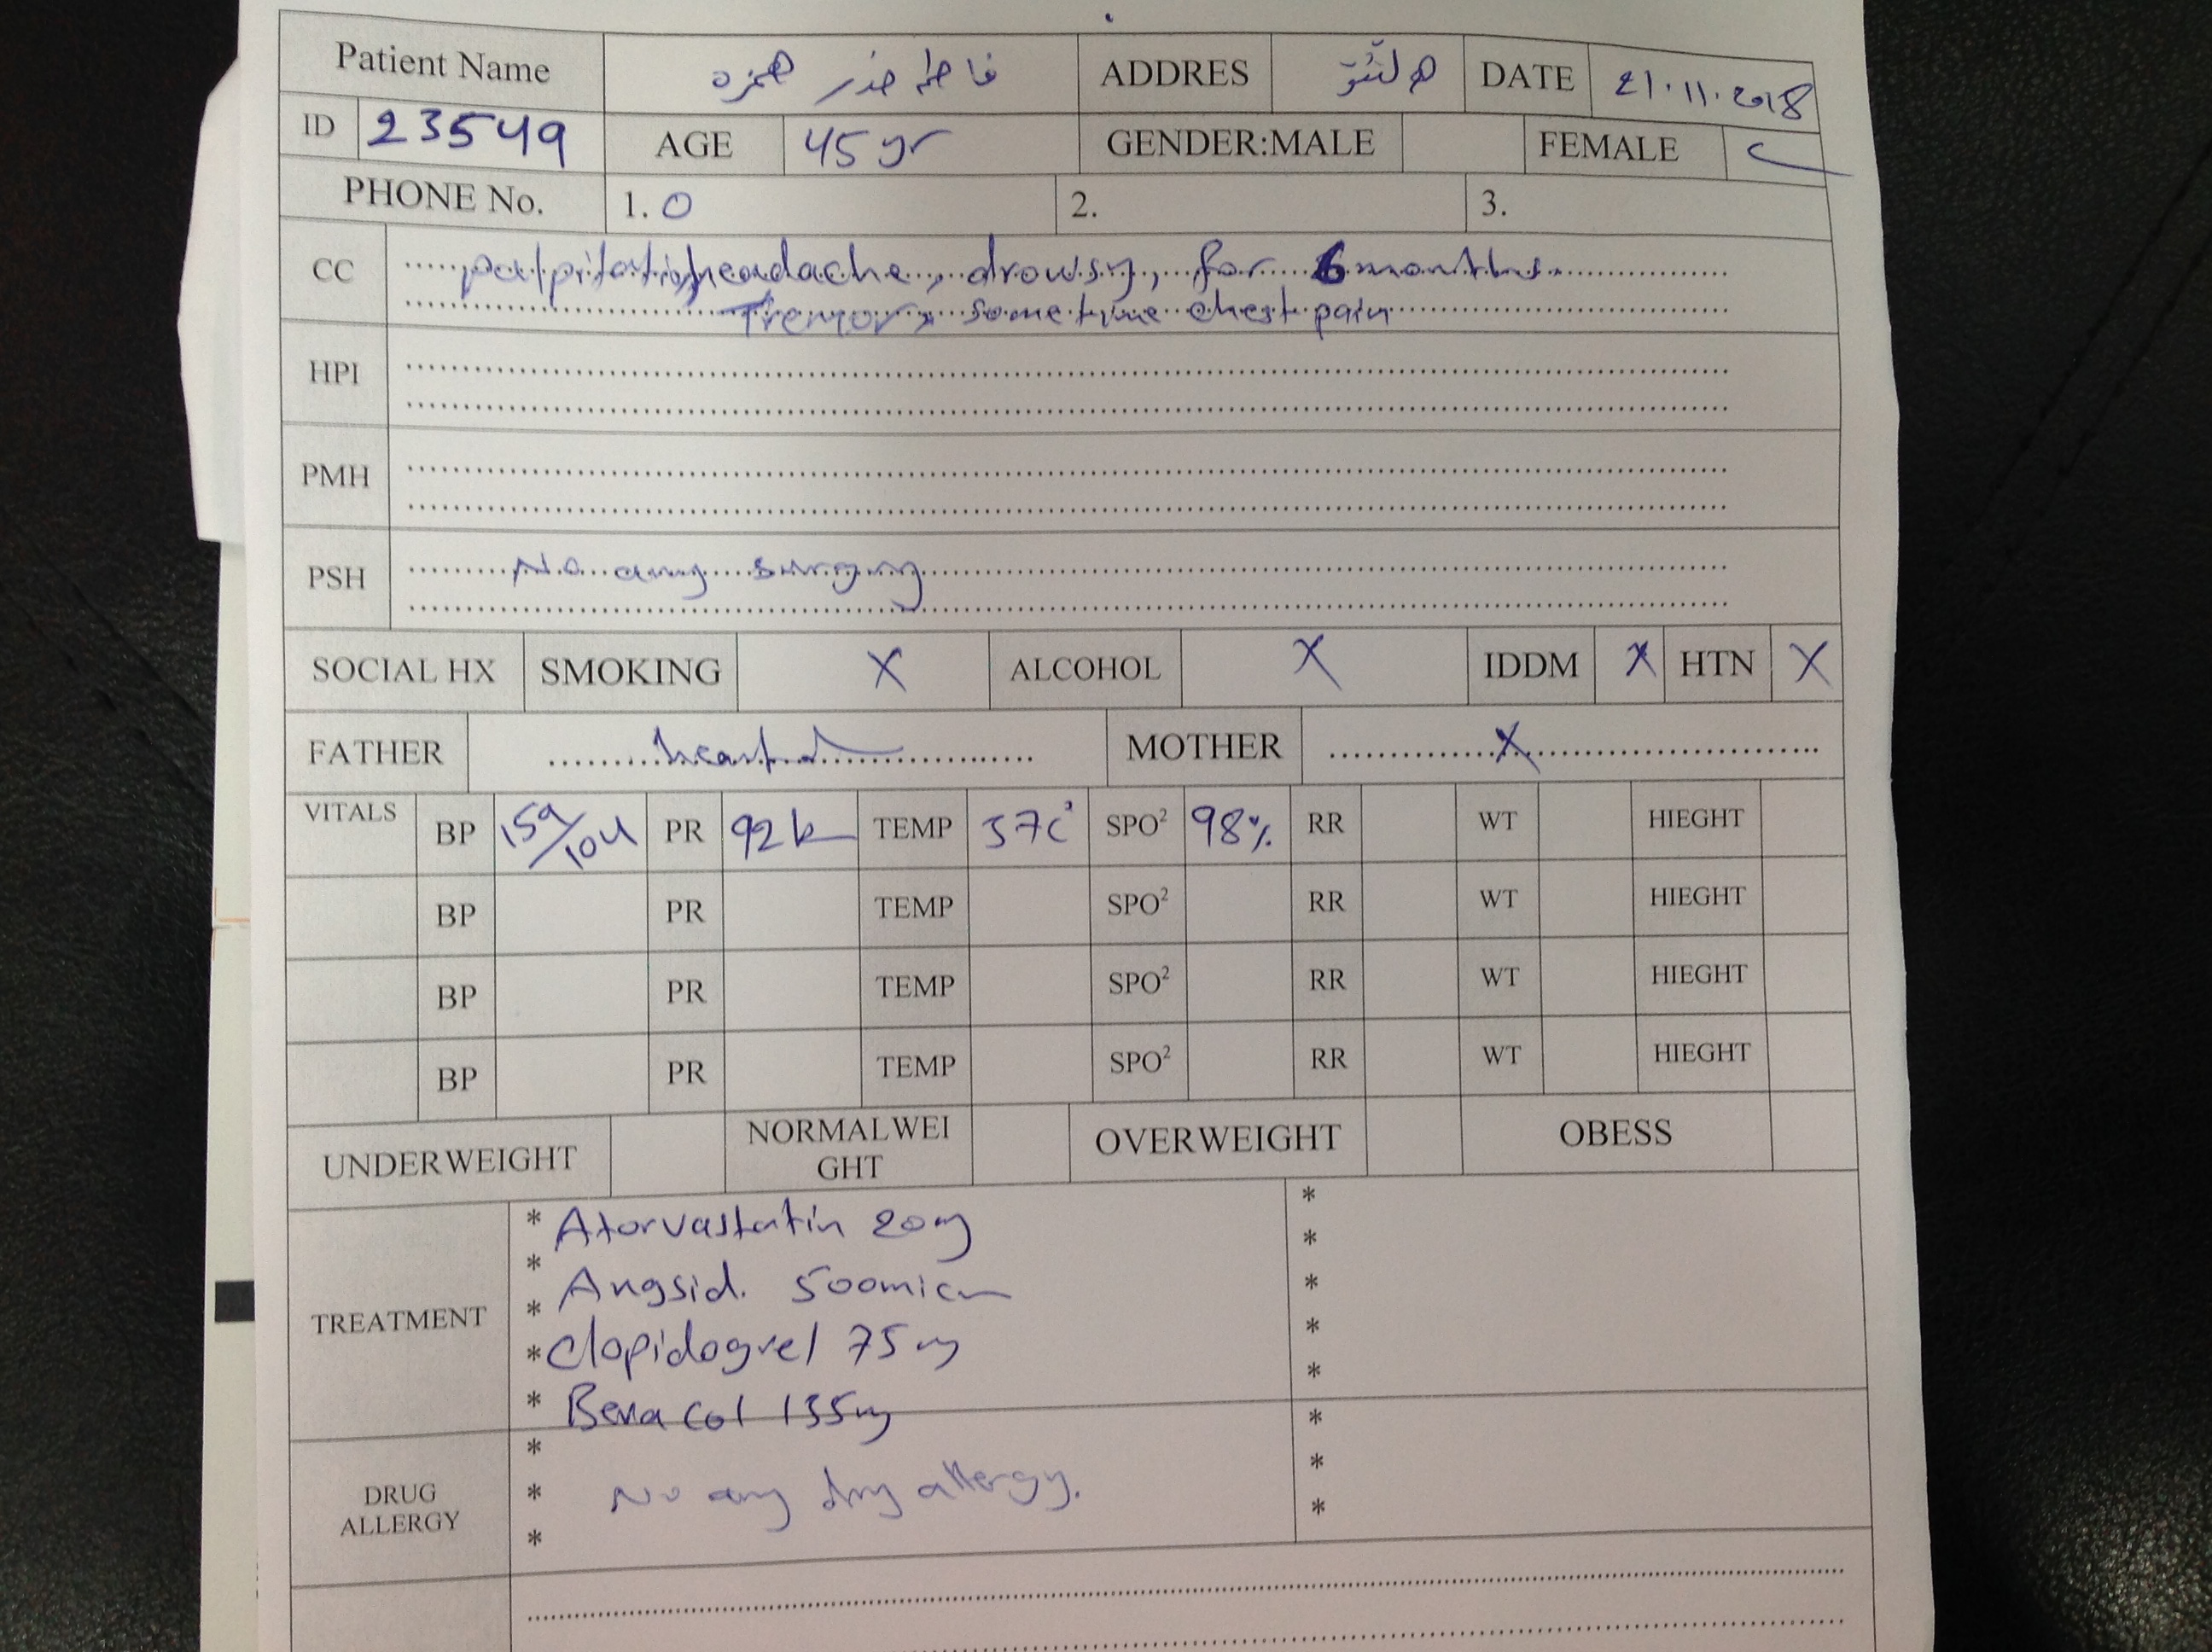 Patient Name فاطمه خدر همزه ADDRES DATE 21.11.2018
ID 23549 AGE 45 yr GENDER:MALE FEMALE
PHONE No. 1. 0 2. 3.
CC palpitation, headache, drowsy, for 6 months.
Tremor, some time chest pain
HPI
PMH
PSH No any surgery
SOCIAL HX SMOKING X ALCOHOL X IDDM X HTN X
FATHER heart d MOTHER X
VITALS BP 159/104 PR 92 b TEMP 37c° SPO² 98% RR WT HIEGHT
BP PR TEMP SPO² RR WT HIEGHT
BP PR TEMP SPO² RR WT HIEGHT
BP PR TEMP SPO² RR WT HIEGHT
UNDERWEIGHT NORMALWEI
GHT OVERWEIGHT OBESS
TREATMENT
* Atorvastatin 20mg *
* Angsid. 500micr *
* Clopidogrel 75mg *
* Bevacol 135mg *
DRUG
ALLERGY
* No any drug allergy. *